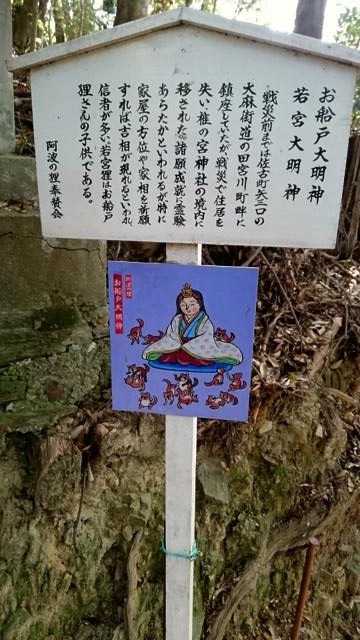 お船戸大明神
若宮大明神
戦災前までは佐古町大三口の
大麻街道の田宮川町畔に
鎮座していたが戦災で住居を
失い椎の宮神社の境内に
移された諸願成就に霊験
あらたかといわれるが特に
家屋の方位や家相を祈願
すれば吉相が現れるといわれ
信者が多い若宮狸はお船戸
狸さんの子供である。
阿波の狸奉賛会
お船戸大明神